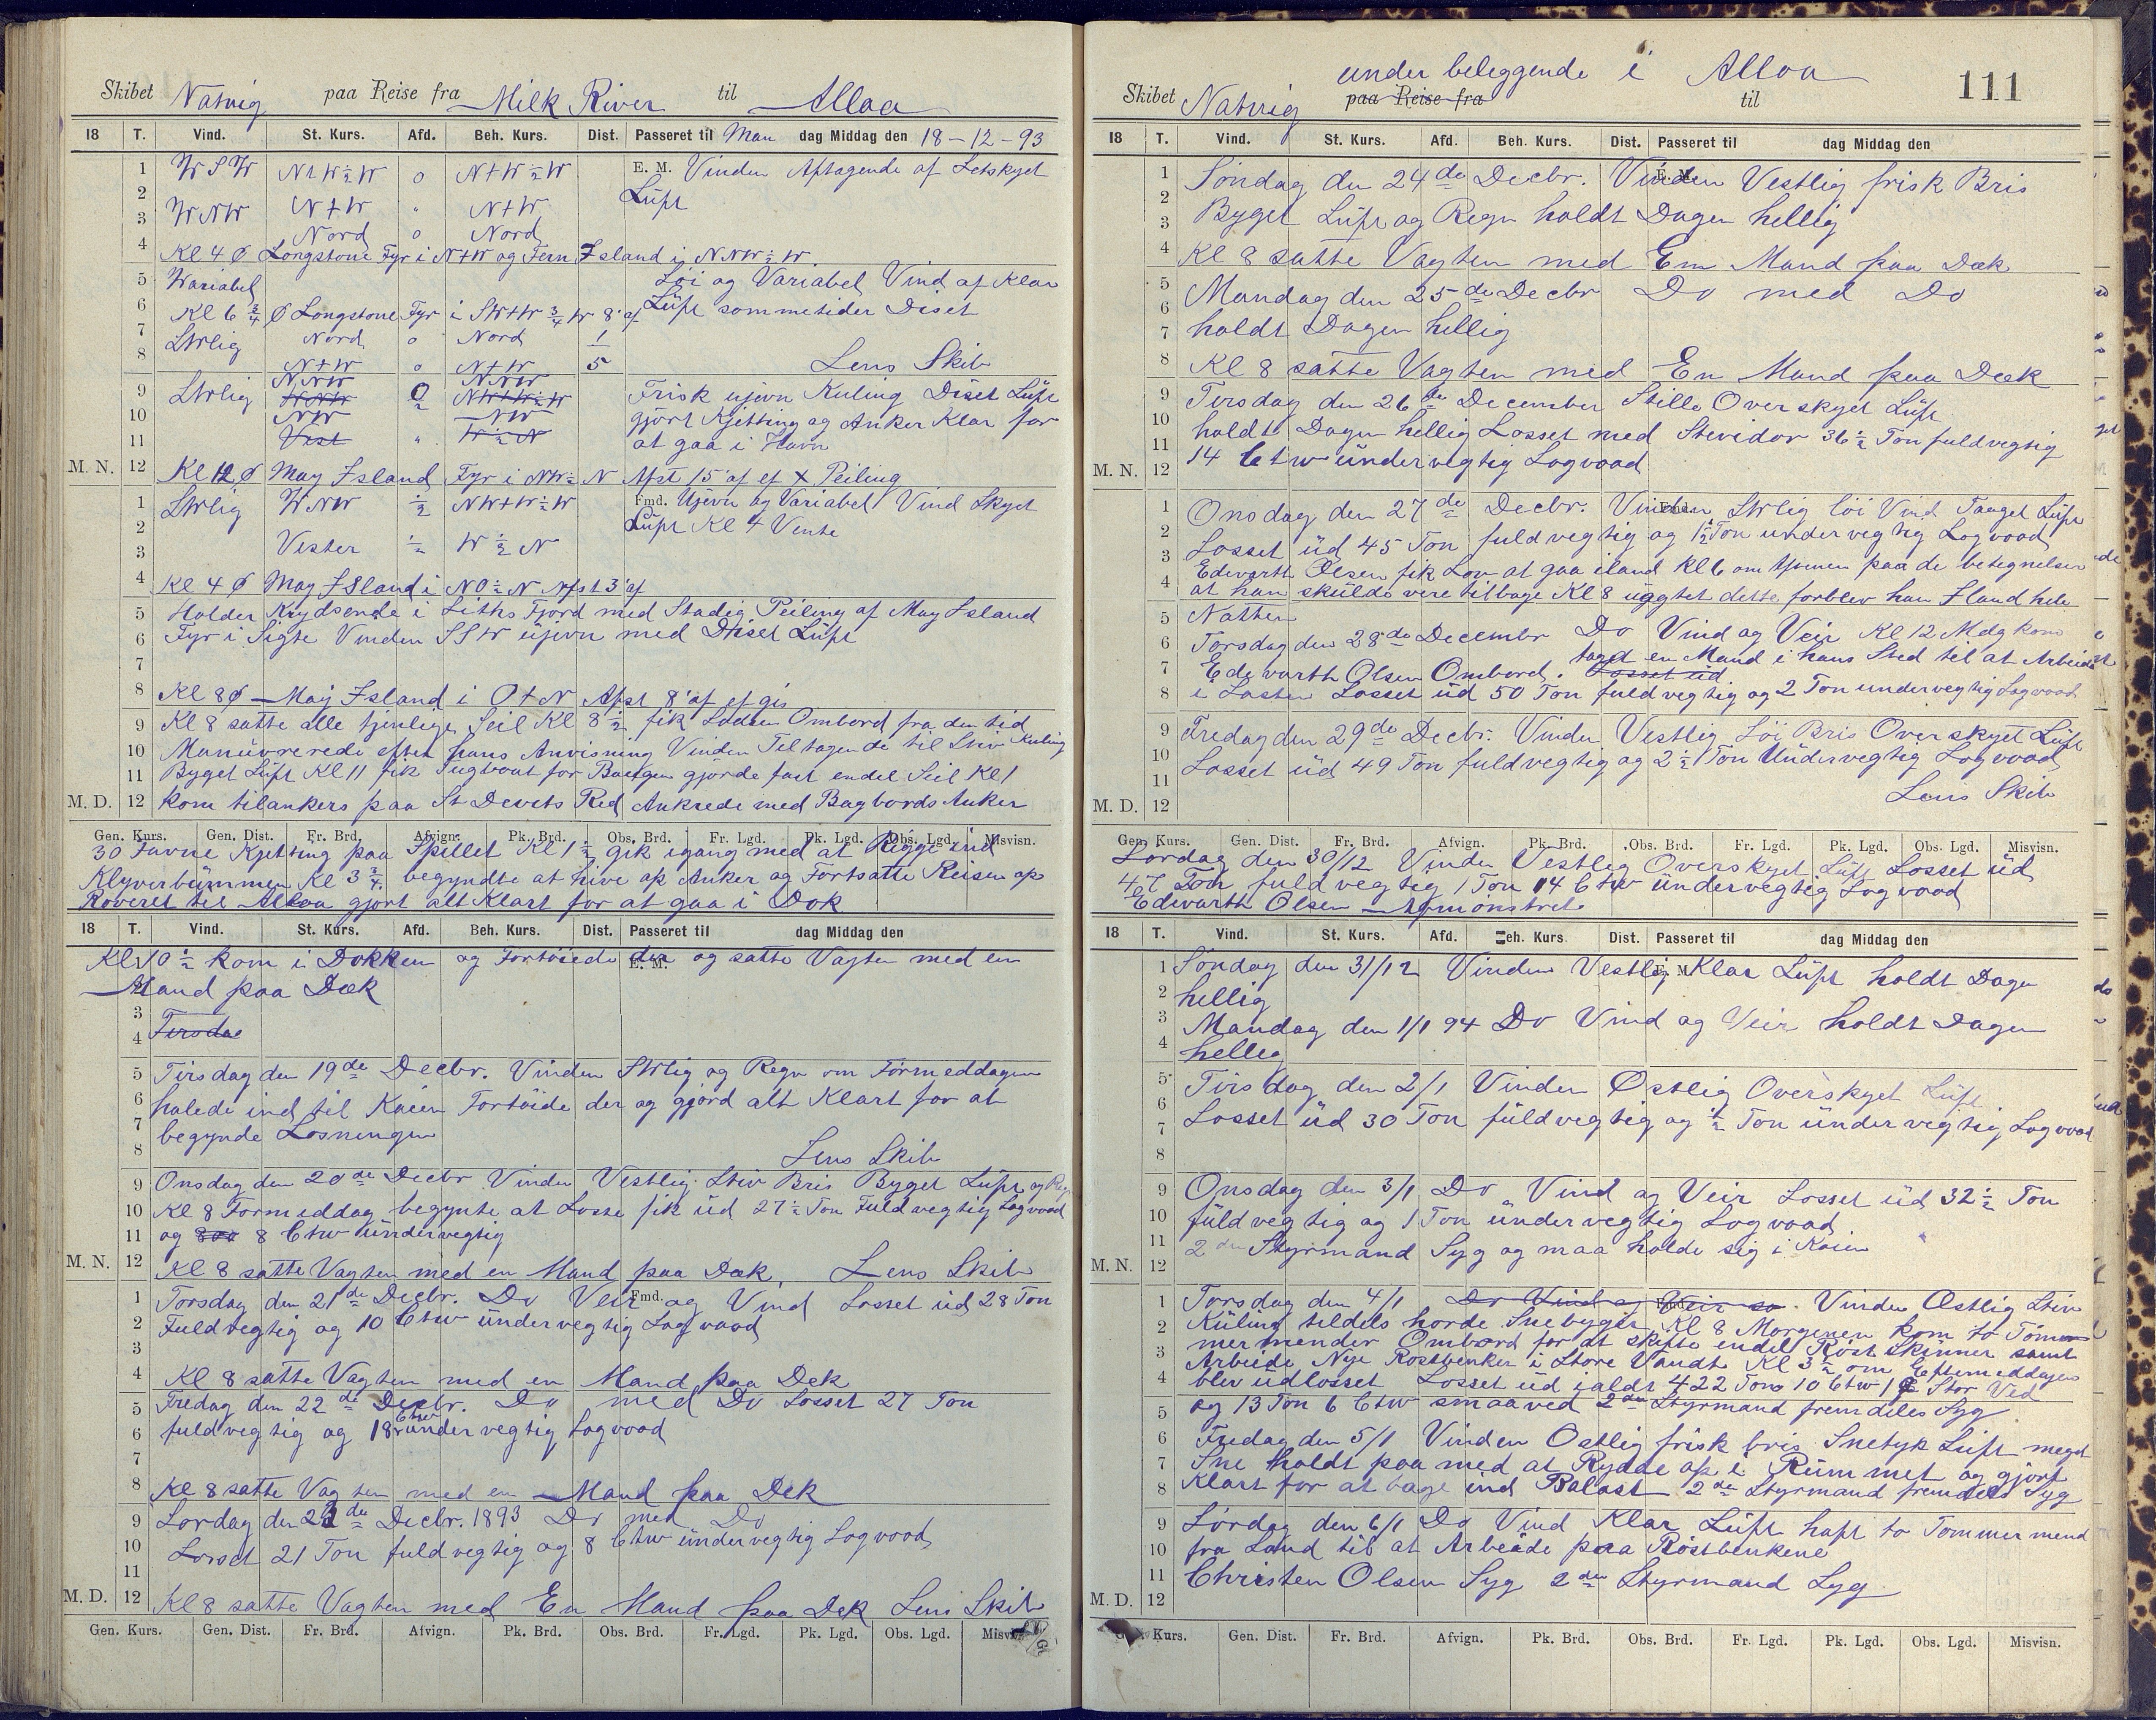 Skibet Natvig paa Reise fra Milk River til Alloa
18 T. Vind. St. Kurs. Afd. Beh. Kurs. Dist. Passeret til Man dag Middag den 18-12-93
1 WSW N+W½W 0 N+W½W E. M. Vinden Aftagende af Letskyet
2 Luft
3 WNW N+W " N+W
Nord 0 Nord
4 Kl 4 Ø Longstone Fyr i N+W og Fern Island i NNW½W
5 Wariabel Löi og Variabel Vind af Klar
6 Kl 6¾ Ø Longstone Fyr i SW+W¾W 8' af Luft sommetider Diset
7 SWlig Nord 0 Nord 1
8 N+W 0 N+W 5 Lens Skib
NNW NNW
9 SWlig WNW 0/2 NW+W½W Frisk ujevn Kuling Diset Luft
10 NW NW gjört Kjetting og Anker Klar for
11 Vest " W½N at gaa i Havn
M. N. 12 Kl 12 Ø May Island Fyr i NW½N Afst 15' af ef X Peiling
1 SWlig WNW ½ NW+W½W Fmd. Ujevn og Variabel Vind Skyet
2 Luft Kl 4 Vente
3 Vester ½ W½N
4 Kl 4 Ø May Island i NO½N Afst 3' af
5 Holder Krydsende i Liths Fjord med Stadig Peiling af May Island
6 Fyr i Sigte Vinden SSW ujevn med Diset Luft
7
8 Kl 8 Ø May Island i O+N Afst 8' af ef gis
9 Kl 8 satte alle tjenlige Seil Kl 8½ fik Lodsen Ombord fra den tid
10 Manuvrerede efter hans Anvisning Vinden Tiltagende til Stiv Kuling
11 Byget Luft Kl 11 fik Tugboat for Baugen gjorde fast endel Seil Kl 1
M. D. 12 kom tilankers paa St Devets Red Ankrede med Bagbords Anker
Gen. Kurs. Gen. Dist. Fr. Brd. Afvign. Pk. Brd. Obs. Brd. Fr. Lgd. Pk. Lgd. Obs. Lgd. Misvisn.
30 Favne Kjetting paa Spillet Kl 1½ gik igang med at Rigge ind
Klyverbummen Kl 3¾ begyndte at hive op Anker og Fortsatte Reisen op
Roveret til Alloa gjort alt Klart for at gaa i Dok
18 T. Vind. St. Kurs. Afd. Beh. Kurs. Dist. Passeret til dag Middag den
1 Kl 10½ kom i Dokken og Fortöiede der E. M. og satte Vagten med en
2 Mand paa Dæk
3
4 Tirsdae
5 Tirsdag den 19de Decbr. Vinden SWlig og Regn om Formeddagen
6 halede ind til Kaien Fortöide der og gjord alt Klart for at
7 begynde Losningen
8 Lens Skib
9 Onsdag den 20de Decbr Vinden Vestlig Stiv Bris Byget Luft og Reg
10 Kl 8 Formeddag begynte at Losse fik ud 27½ Ton Fuldvegtig Logvood
11 og 800 8 Ctw undervegtig
M. N. 12 Kl 8 satte Vagten med en Mand paa Dæk, Lens Skib
1 Torsdag den 21de Decbr. Do Veir Fmd. og Vind Losset ud 28 Ton
2 Fuldvegtig og 10 Ctw undervegtig Logvood
3
4 Kl 8 satte Vagten med en Mand paa Dek
5 Fredag den 22de Decbr. Do med Do Losset 27 Ton
6 fuldvegtig og 18 Ctw undervegtig Logvood
7
8 Kl 8 satte Vagten med en Mand paa Dek
9 Lordag den 23de Decbr. 1893 Do med Do
10 Losset 21 Ton fuldvegtig og 8 Ctw undervegtig Logvood
11
M. D. 12 Kl 8 satte Vagten med En Mand paa Dek Lens Skib
Gen. Kurs. Gen. Dist. Fr. Brd. Afvign. Pk. Brd. Obs. Brd. Fr. Lgd. Pk. Lgd. Obs. Lgd. Misvisn.
under beleggende i Alloa 111
Skibet Natvig paa Reise fra til
18 T. Vind. St. Kurs. Afd. Beh. Kurs. Dist. Passeret til dag Middag den
1 Söndag den 24de Decbr. Vinden E. M. Vestlig frisk Bris
2 Byget Luft og Regn holdt Dagen hellig
3
4 Kl 8 satte Vagten med Em Mand paa Dæk
5 Mandag den 25de Decbr Do med Do
6
7 holdt Dagen hellig
8 Kl 8 satte Vagten med En Mand paa Dæk
9 Tirsdag den 26de December Stille Overskyet Luft
10 holdt Dagen hellig Losset med Stevidor 36½ Ton fuldvegtig
11 14 Ctw undervegtig Logvood
M. N. 12
1 Onsdag den 27de Decbr. Vinden Fmd. SWlig löi Vind Taaget Luft
2 Losset ud 45 Ton fuldvegtig og 1½ Ton undervegtig Logvood
3 Edevarth Olsen fik Lov at gaa iland Kl 6 om Aftenen paa de betegnelser
4 at han skulde vere tilbage Kl 8 uagtet dette forblev han Iland hele
5 Natten
6 Torsdag den 28de Decembr Do Vind og Veir Kl 12 Mdg kom
7 Edevarth Olsen Ombord. Losset ud taget en Mand i hans Sted til at Arbeide
8 i Lasten Losset ud 50 Ton fuldvegtig og 2 Ton undervegtig Logvood
9 Fredag den 29de Decbr. Vinden Vestlig Löi Bris Overskyet Luft
10 Losset ud 49 Ton fuldvegtig og 2½ Ton Undervegtig Logvood
11 Lens Skib
M. D. 12
Gen. Kurs. Gen. Dist. Fr. Brd. Afvign. Pk. Brd. Obs. Brd. Fr. Lgd. Pk. Lgd. Obs. Lgd. Misvisn.
Lordag den 30/12 Vinden Vestleg Overskyet Luft Losset ud
47 Ton fuldvegtig 1 Ton 14 Ctw undervegtig Logvood
Edwarth Olsen Afmönstret
18 T. Vind. St. Kurs. Afd. Beh. Kurs. Dist. Passeret til dag Middag den
1 Söndag den 31/12 Vinden Vestlig E. M. Klar Luft holdt Dagen
2 hellig
3 Mandag den 1/1 94 Do Vind og Veir holdt Dagen
4 helleg
5 Tirsdag den 2/1 Vinden Østlig Overskyet Luft
6
7 Losset ud 30 Ton fuldvegtig og ½ Ton undervegtig Logvood
8
9 Onsdag den 3/1 Do " Vind og Veir Losset ud 32½ Ton
10 fuldvegtig og 1 Ton undervegtig Logvood.
11 2den Styrmand Syg og maa holde sig i Köien
M. N. 12
1 Torsdag den 4/1 Do Vind og Veir so. Vinden Østlig Stiv
2 Kuling tildels horde Snebyger Kl 8 Morgenen kom to Töm
3 mermender Ombord for at skifte endel Röst Skinner samt
Arbeide Nye Rostbenker i Store Vandt Kl 3½ om Eftermeddagen
4 blev udlosset Losset ud ialdt 422 Tons 10 Ctw Stor Ved
5 og 13 Ton 6 Ctw smaaved 2den Styrmand fremdeles Syg
6 Fredag den 5/1 Vinden Ostlig frisk bris Snetyk Luft meget
7 Sne holdt paa med at Rydde op i Rummet og gjort
8 Klart for at tage ind Balast 2de Styrmand fremdeles Syg
9 Lördag den 6/1 Do Vind Klar Luft haft to Tommermend
10 fra Land til at Arbeide paa Röstbenkene
11 Christen Olsen Syg 2den Styrmand Syg
M. D. 12
Kurs. Gen. Dist. Fr. Brd. Afvign. Pk. Brd. Obs. Brd. Fr. Lgd. Pk. Lgd. Obs. Lgd. Misvisn.